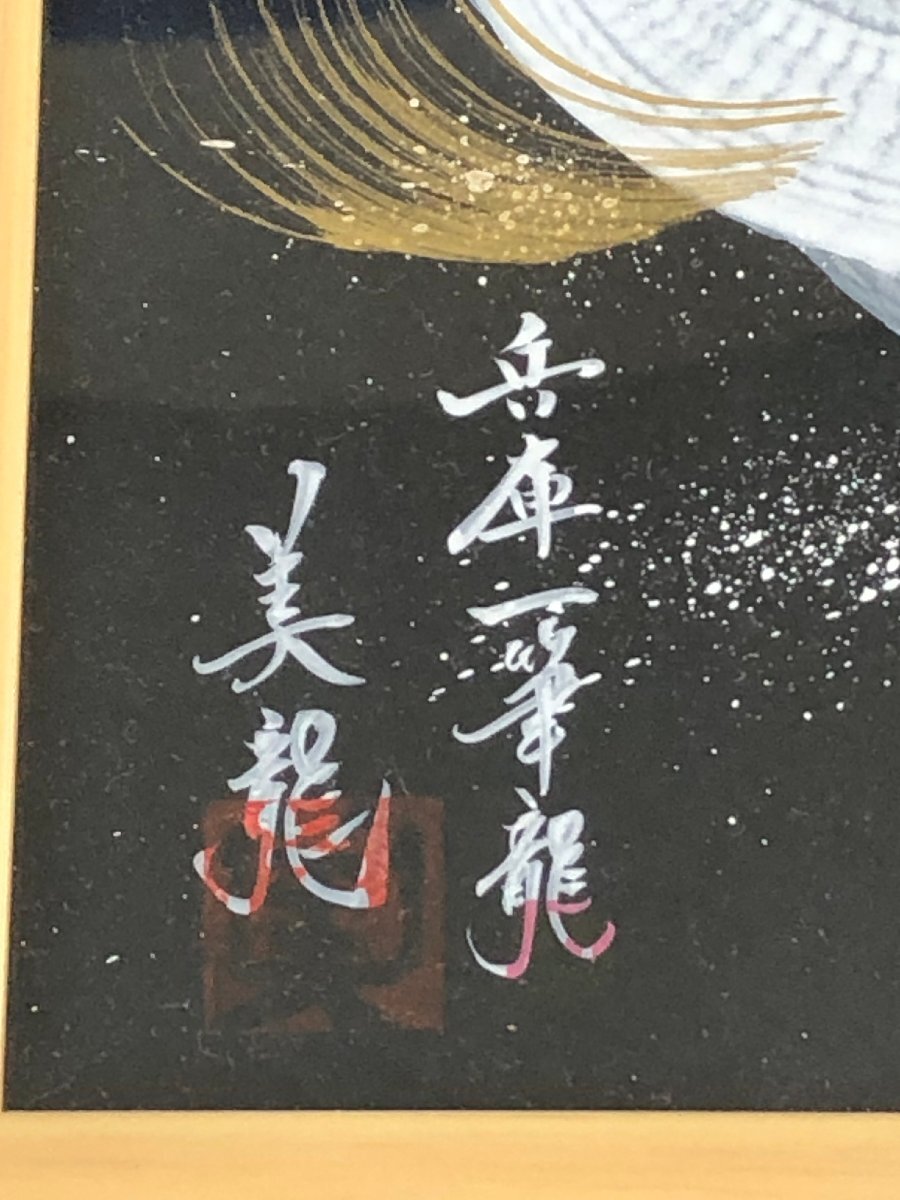 兵庫一筆龍
美龍